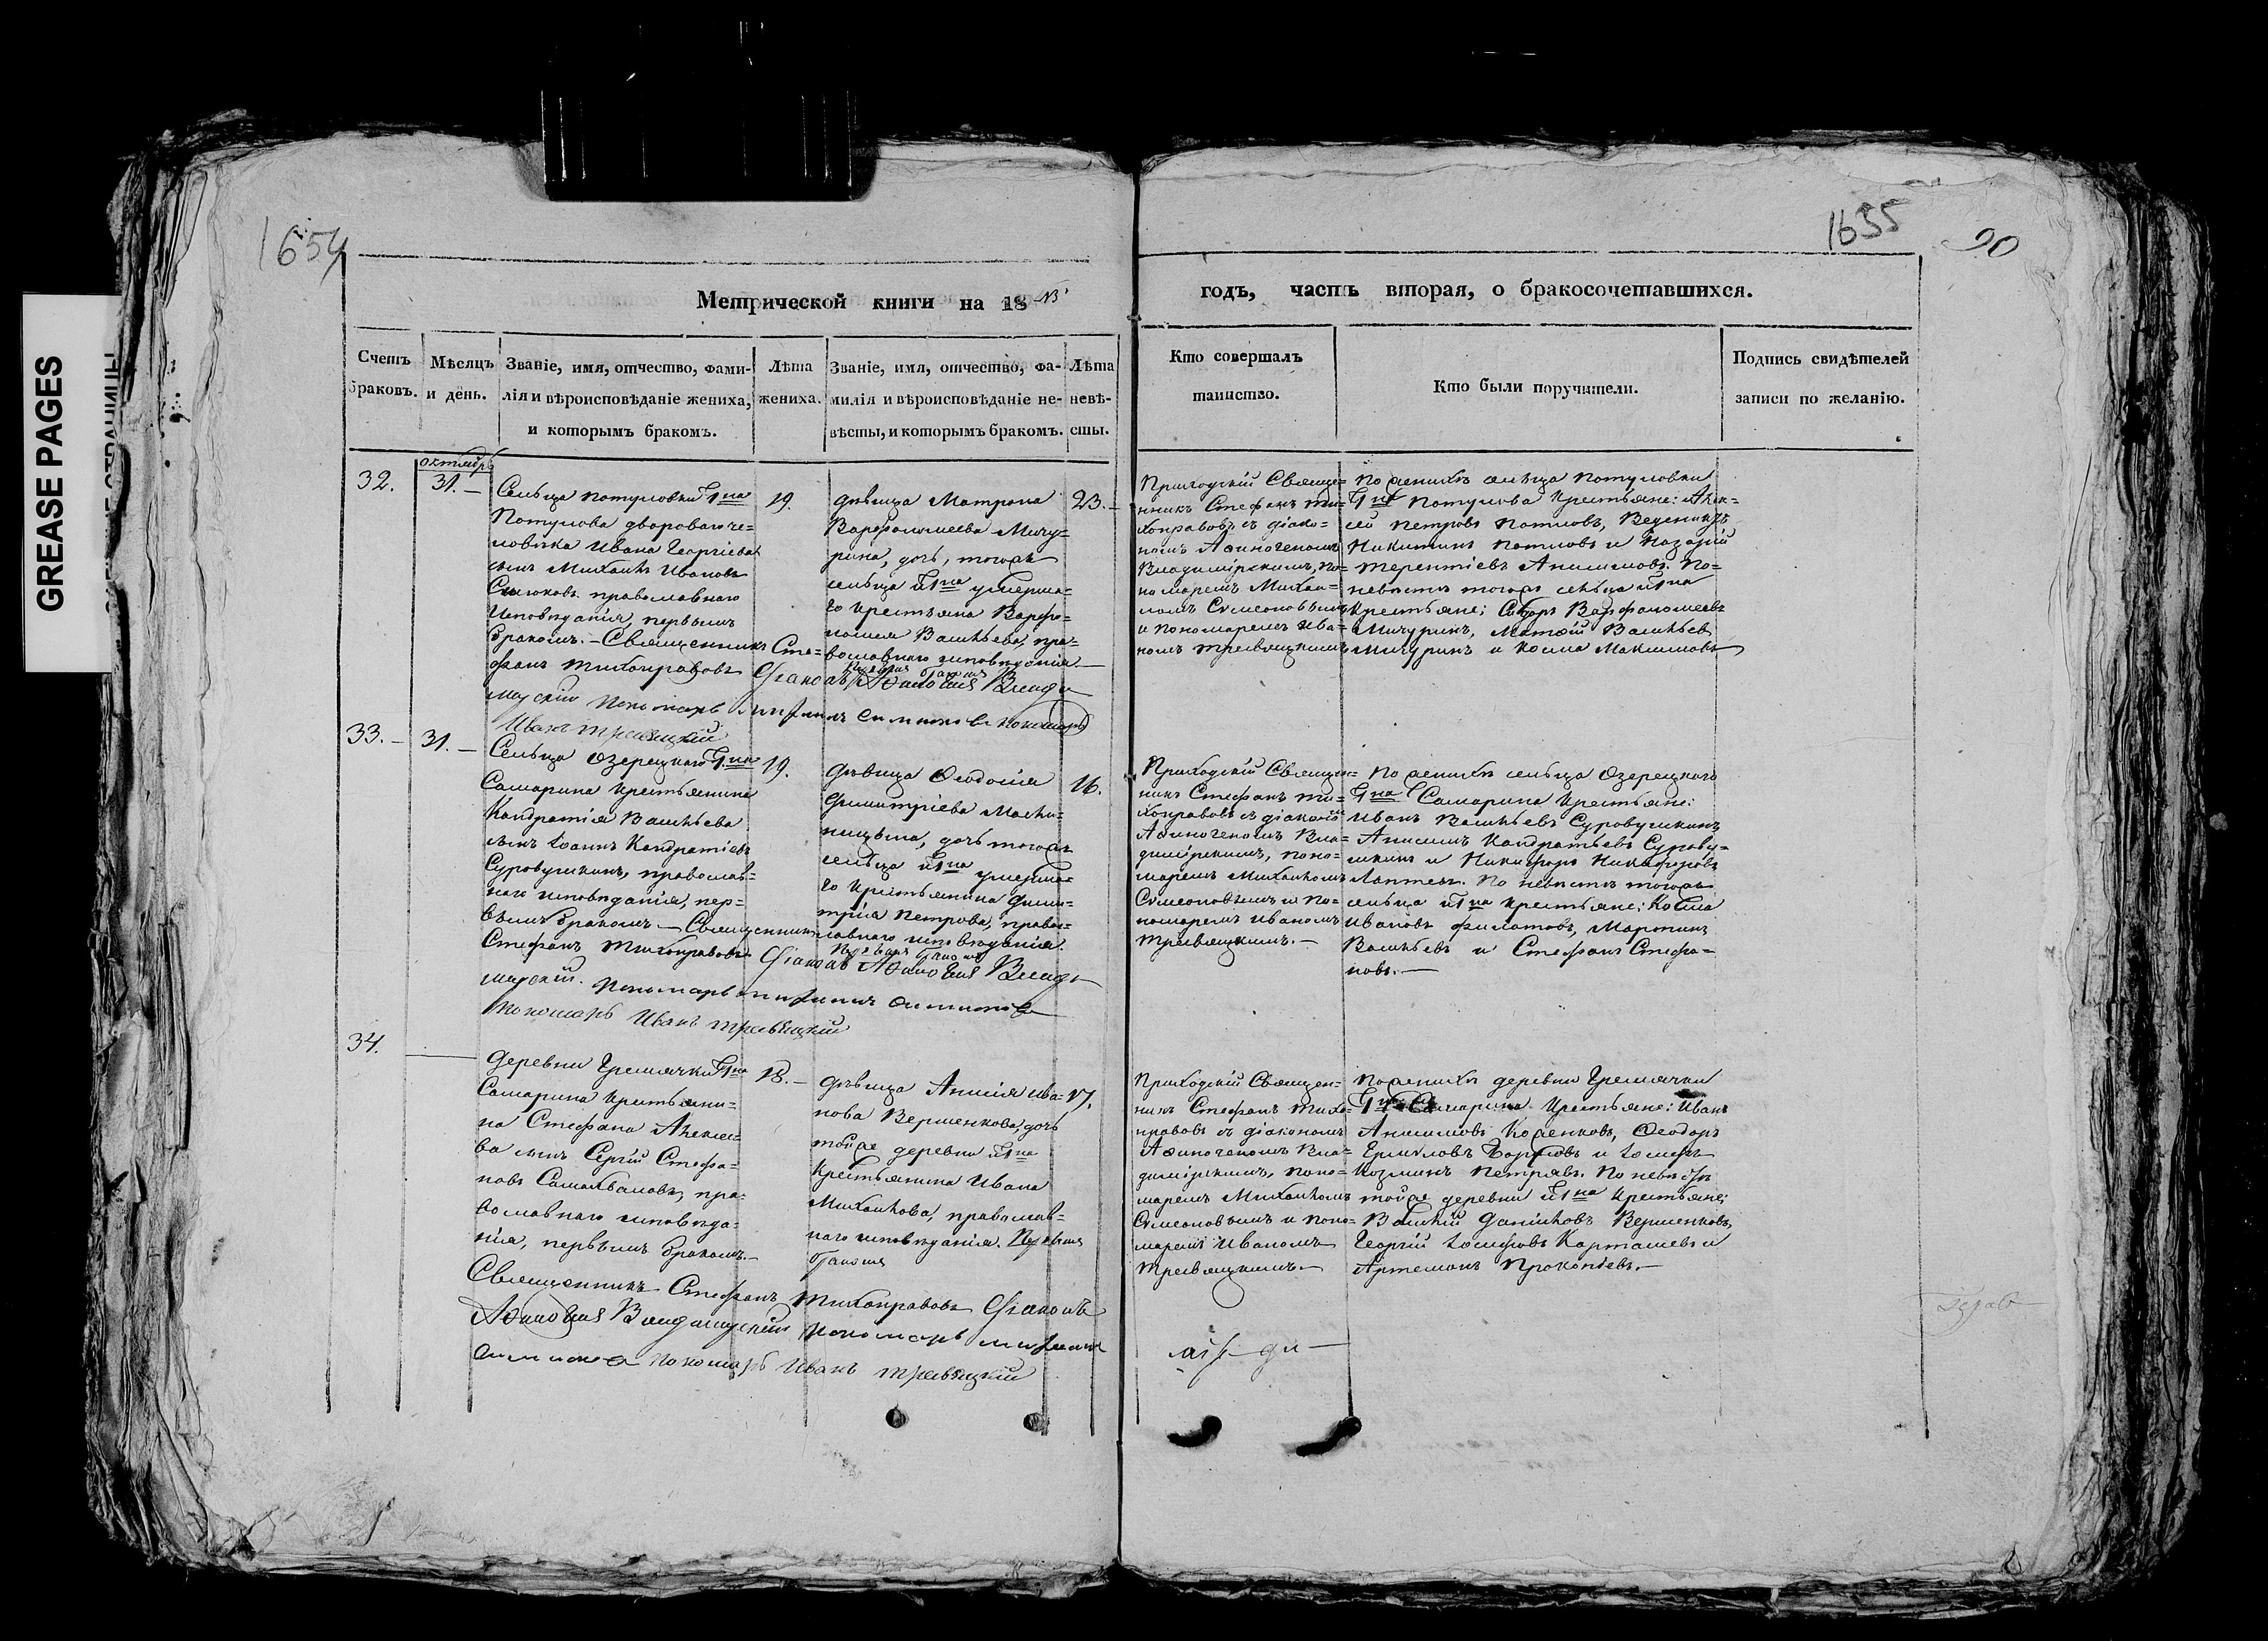 GREASE PAGES
1654
1655
90
Метрической книги на 18
годъ, часть вторая, о бракосочетавшихся.
Счетъ браковъ.
Мѣсяцъ и день.
Званіе, имя, отчество, фами-
лія и вѣроисповѣданіе жениха,
и которымъ бракомъ.
Лѣта
жениха.
Званіе, имя, отчество, фа-
милія и вѣроисповѣданіе не-
вѣсты, и которымъ бракомъ.
Лѣта
невѣ-
сты.
Кто совершалъ
таинство.
Кто были поручители.
Подпись свидѣтелей
записи по желанію.
32.
октябрь
31. –
Сельца Потуловки Гна
Потулова двороваго че-
ловѣка Ивана Георгіева
сынъ Михаилъ Ивановъ
православнаго
исповѣданія, первымъ
бракомъ. – Священникъ Сте-
фанъ Тихонравовъ Діаконъ Афиногенъ Влади
мірскій Пономарь Симионовъ пономарь
Иванъ Тресвяцкій
19.
дѣвица Матрона
Варфоломеева Мичу-
рина, дочь, тогожъ
сельца и Гна умерша-
го крестьяна Варфо-
ломея Васильева, пра-
вославнаго исповѣданія
Первымъ бракомъ
23. –
Приходскій Священ-
никъ Стефанъ Ти-
хонравовъ съ діако-
номъ Афиногеномъ
Владимірскимъ, по-
номаремъ Михаи-
ломъ Симеоновымъ
и пономаремъ Ива-
номъ Тресвяцкимъ
По женихѣ сельца Потуловки
Гна Потулова крестьяне: Алек-
сѣй Петровъ Потловъ, Веденихтъ
Никитинъ Потловъ и Назарій
Терентіевъ Анисимовъ. По
невѣстѣ тогожъ сельца и Гна
крестьяне: Сидоръ Варфоломеевъ
Мичуринъ, Матѳій Васильевъ
Мичуринъ и Косма Максимовъ
33. –
31. –
Сельца Озерецкаго Гна
Самарина крестьянина
Кандратія Васильева
сынъ Іоаннъ Кандратіевъ
Суровушкинъ, православ-
наго исповѣданія, пер-
вымъ бракомъ. – Священникъ
Стефанъ Тихонравовъ Діаконъ Афиногенъ Влади
мірскій. Пономарь Симионовъ
Пономарь Иванъ Тресвяцкій
19.
Дѣвица Ѳеодосія
Димитріева
дочь тогожъ
сельца и Гна умерша-
го крестьянина Дими-
трія Петрова, право-
славнаго исповѣданія.
Первымъ бракомъ
16.
Приходскій Священ-
никъ Стефанъ Ти-
хонравовъ съ діакономъ
Афиногеномъ Вла-
димірскимъ, поно-
маремъ Михаиломъ
Симеоновымъ и по-
номаремъ Иваномъ
Тресвяцкимъ. –
По женихѣ сельца Озерецкаго
Гна Самарина крестьяне:
Иванъ Васильевъ Суровушкинъ
Анисимъ Кандратьевъ Сурову-
шкинъ и Никифоръ Никифоровъ
Лаптевъ. По невѣстѣ тогожъ
сельца и Гна крестьяне: Косма
Ивановъ Филатовъ, Мартинъ
Васильевъ и Стефанъ Стефа-
новъ. –
34.
Деревни Гремячки Гна
Самарина крестьяни-
на Стефана Алексѣе-
ва сынъ Сергій Стефа-
новъ Самохваловъ, пра-
вославнаго исповѣда-
нія, первымъ бракомъ. –
Священникъ Стефанъ Тихонравовъ Діаконъ
Афиногенъ Владимірскій Пономарь
Симионовъ Пономарь Иванъ Тресвяцкій
18. –
дѣвица Анисія Ива-
нова Вершенкова, дочь
тойже деревни и Гна
Крестьянина Ивана
Михаилова, православ-
наго исповѣданія. Первымъ
бракомъ
17.
Приходскій Священ-
никъ Стефанъ Тихо-
нравовъ съ діакономъ
Афиногеномъ Вла-
димірскимъ, поно-
маремъ Михаиломъ
Симеоновымъ и поно-
маремъ Иваномъ
Тресвяцкимъ. –
По женихѣ деревни Гремячки
Гна Самарина Крестьяне: Иванъ
Анисимовъ Коженковъ, Ѳеодоръ
Ермиловъ и
Козминъ Петровъ. По невѣстѣ
тойже деревни и Гна крестьяне:
Василій Даниловъ Вершенковъ,
Георгій Іосифовъ Карташевъ и
Артемонъ Прокопіевъ. –